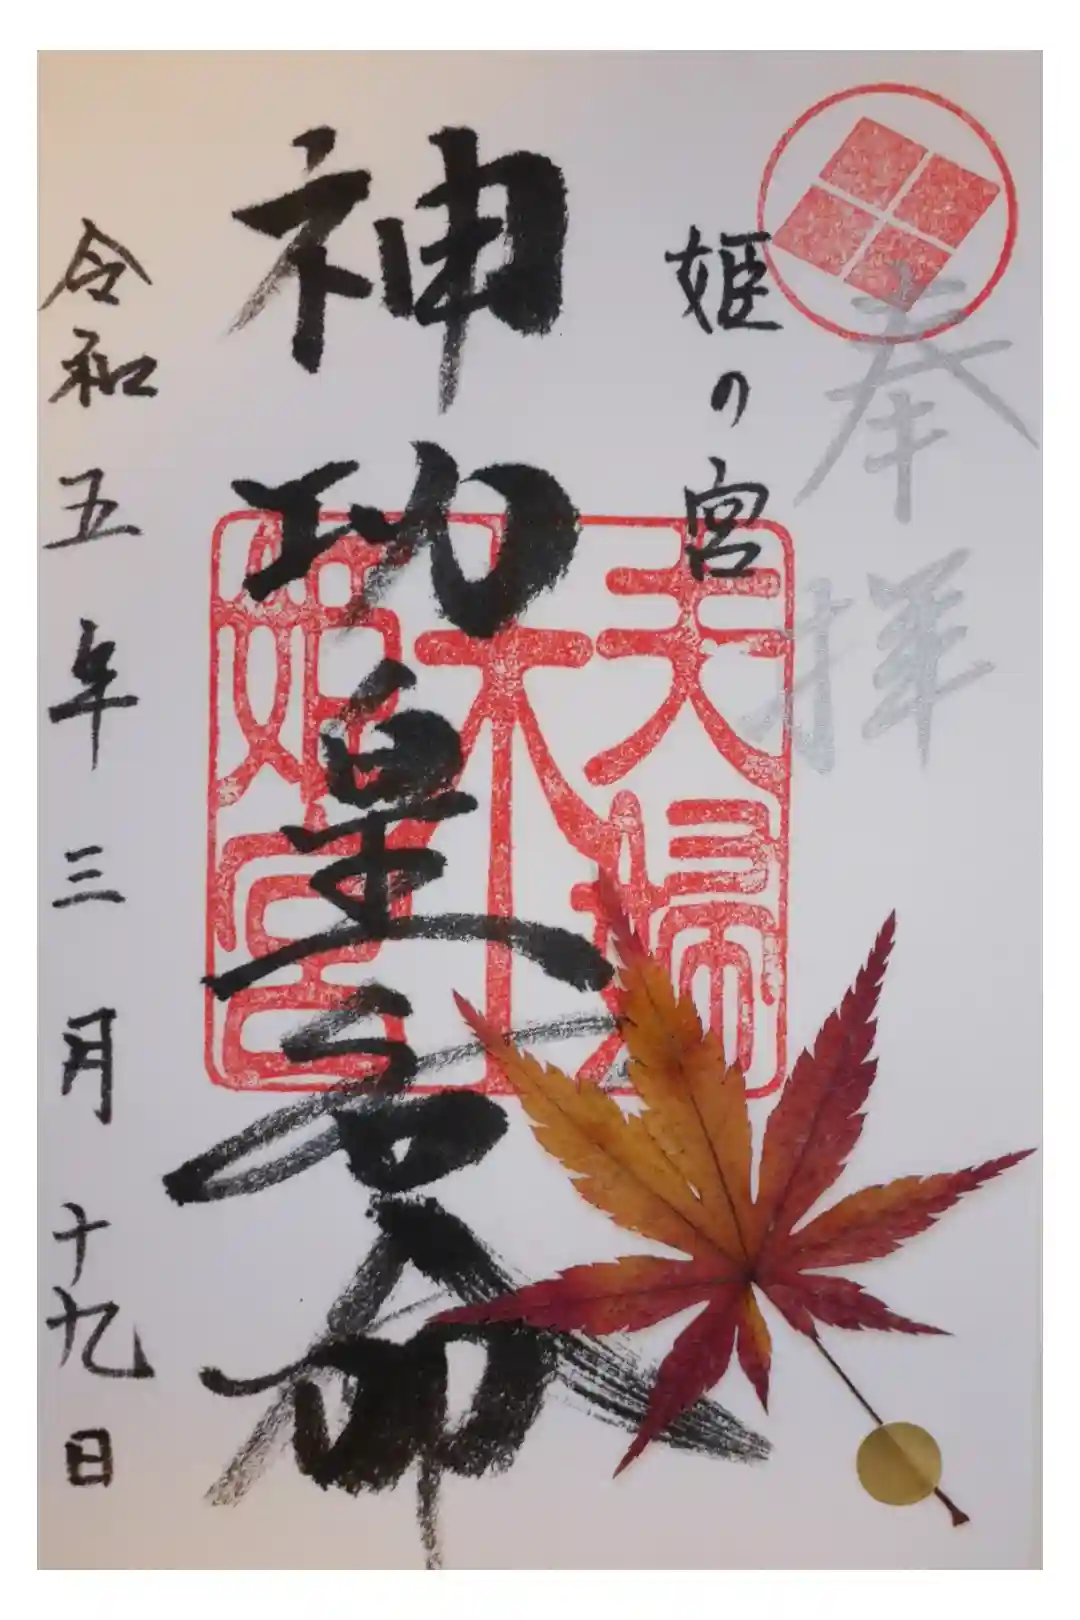 奉拝
姫の宮
夫婦
木
姫宮
神功皇后命
令和五年三月十九日